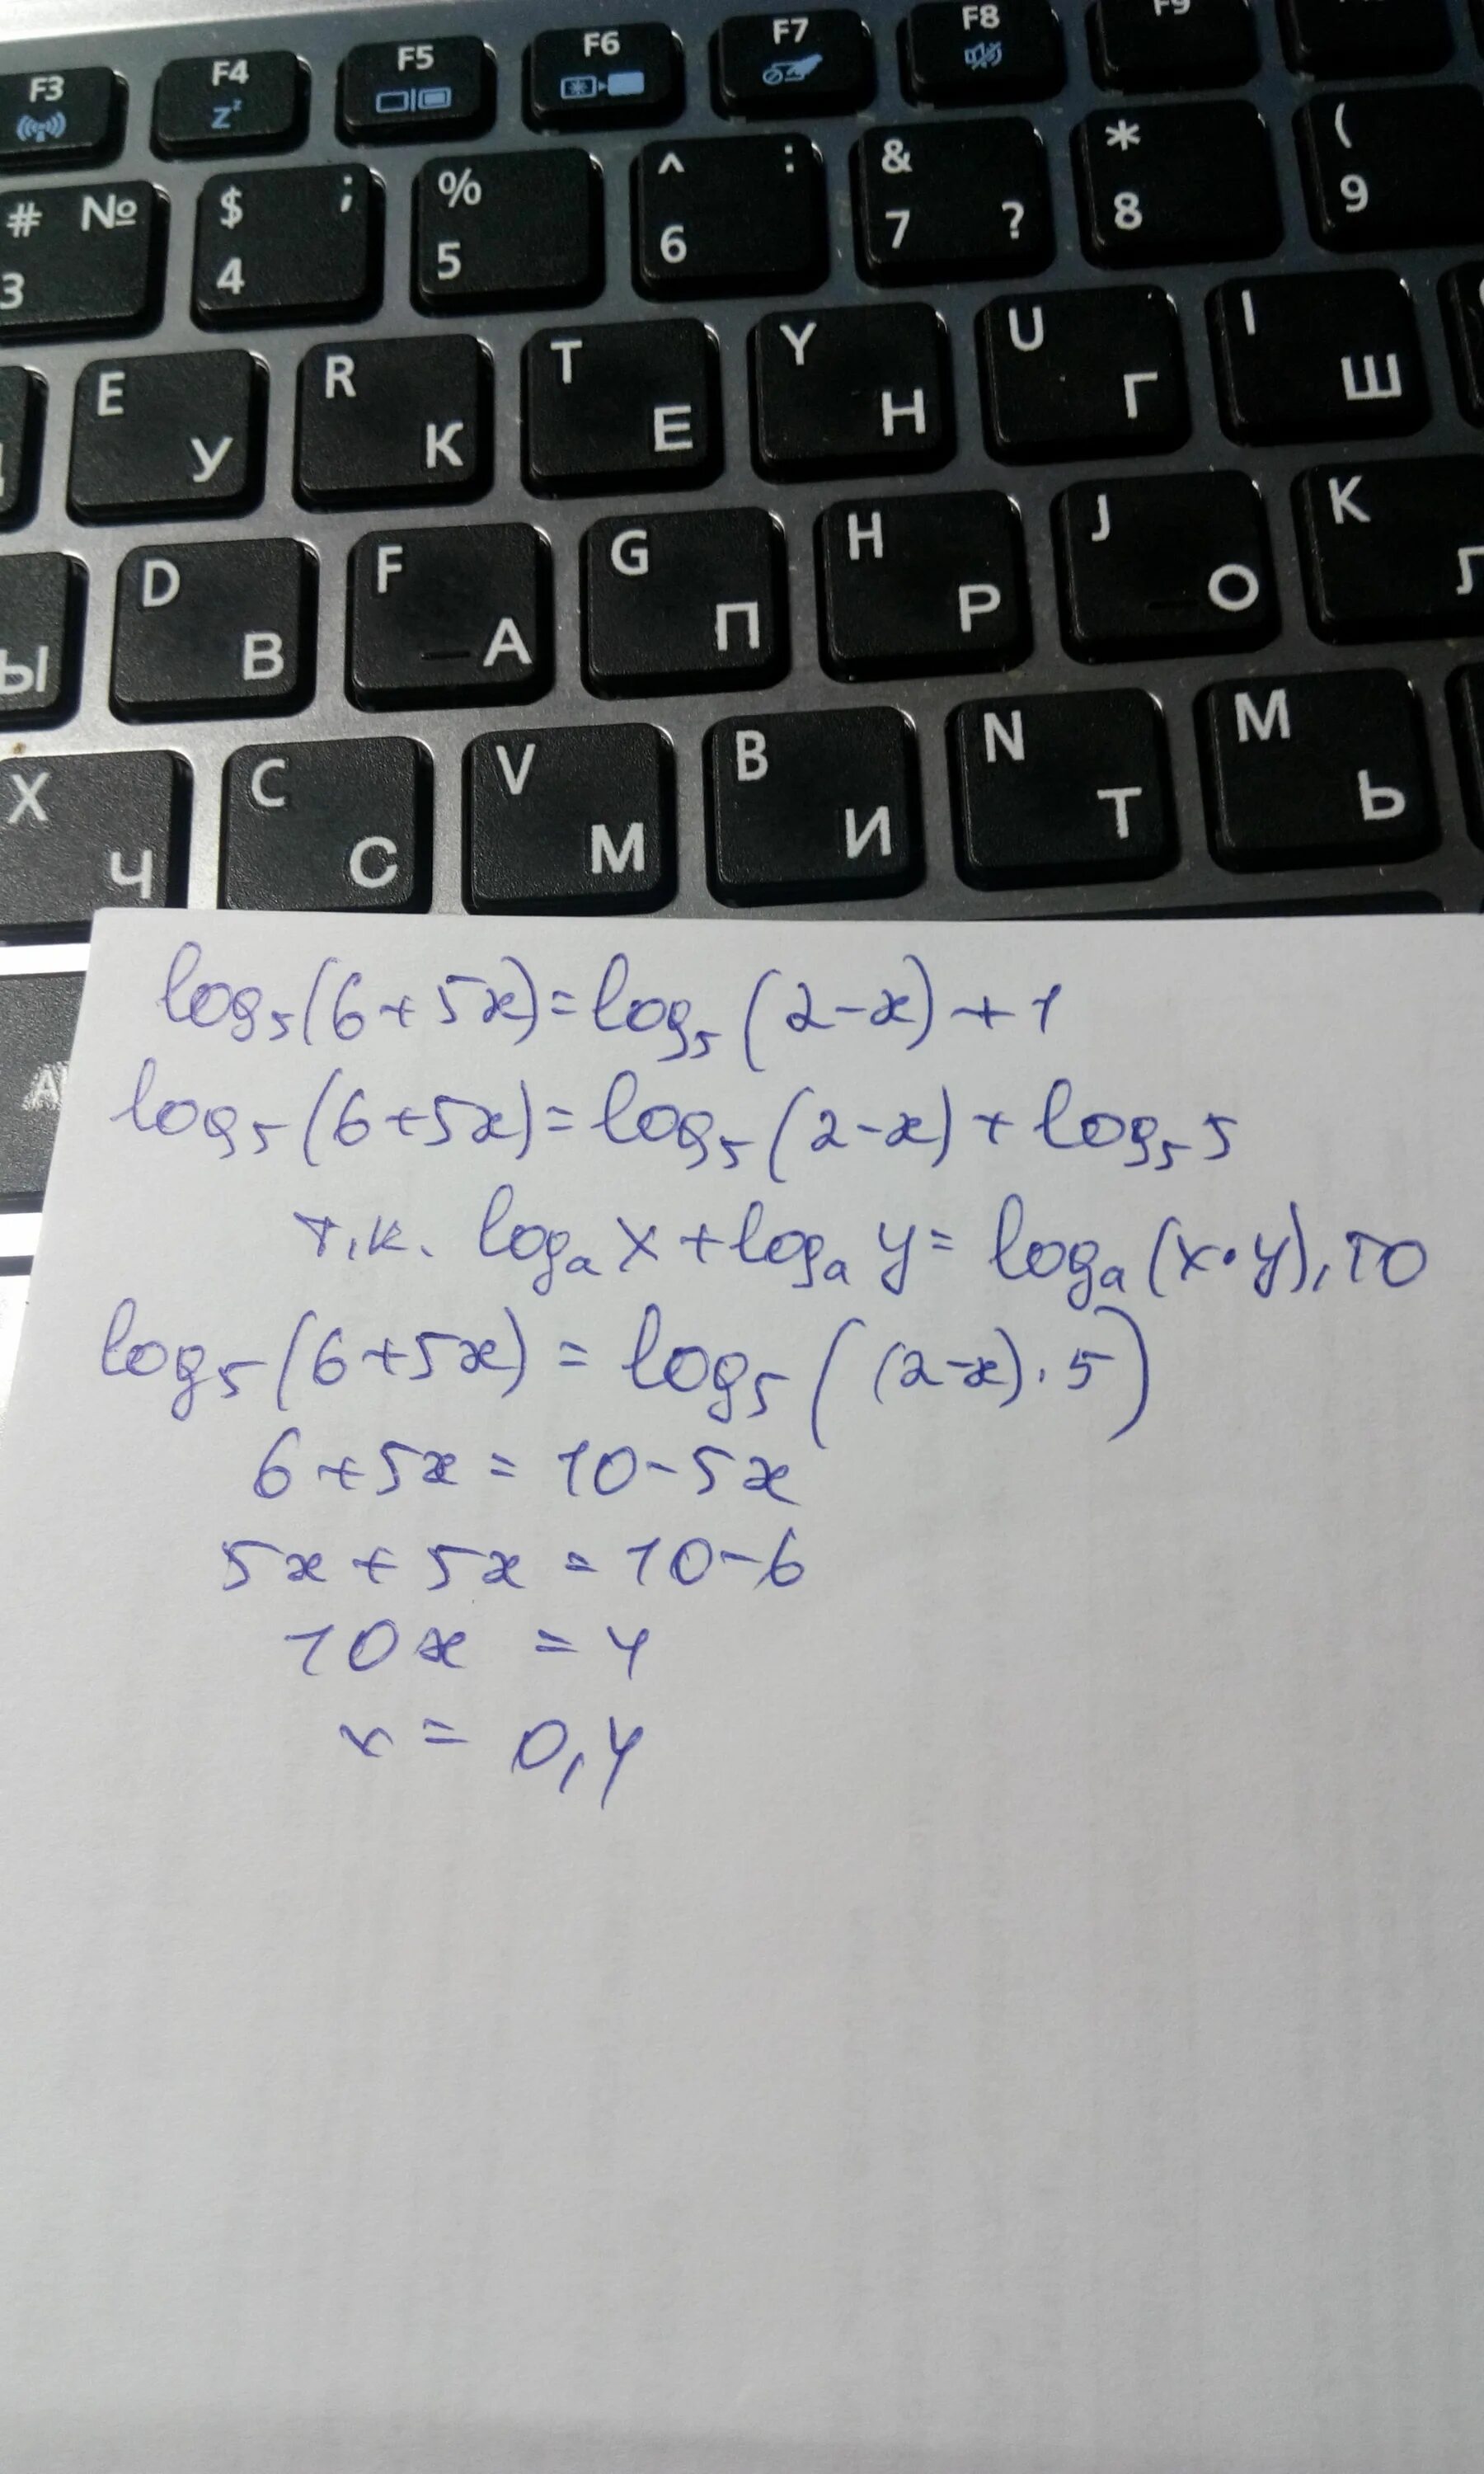 F3 F4 F5 F6 F7 F8 F9
# № 3 $ ; 4 % 5 ^ : 6 & 7 ? * 8 ( 9
E У R К T Е Y Н U Г I Ш
Ы D В F А G П H Р J О K Л
X Ч C С V М B И N Т M Ь
log₅(6+5x)=log₅(2-x)+1
log₅(6+5x)=log₅(2-x)+log₅5
т.к. logₐx+logₐy=logₐ(x·y), то
log₅(6+5x)=log₅((2-x)·5)
6+5x=10-5x
5x+5x=10-6
10x=4
x=0,4